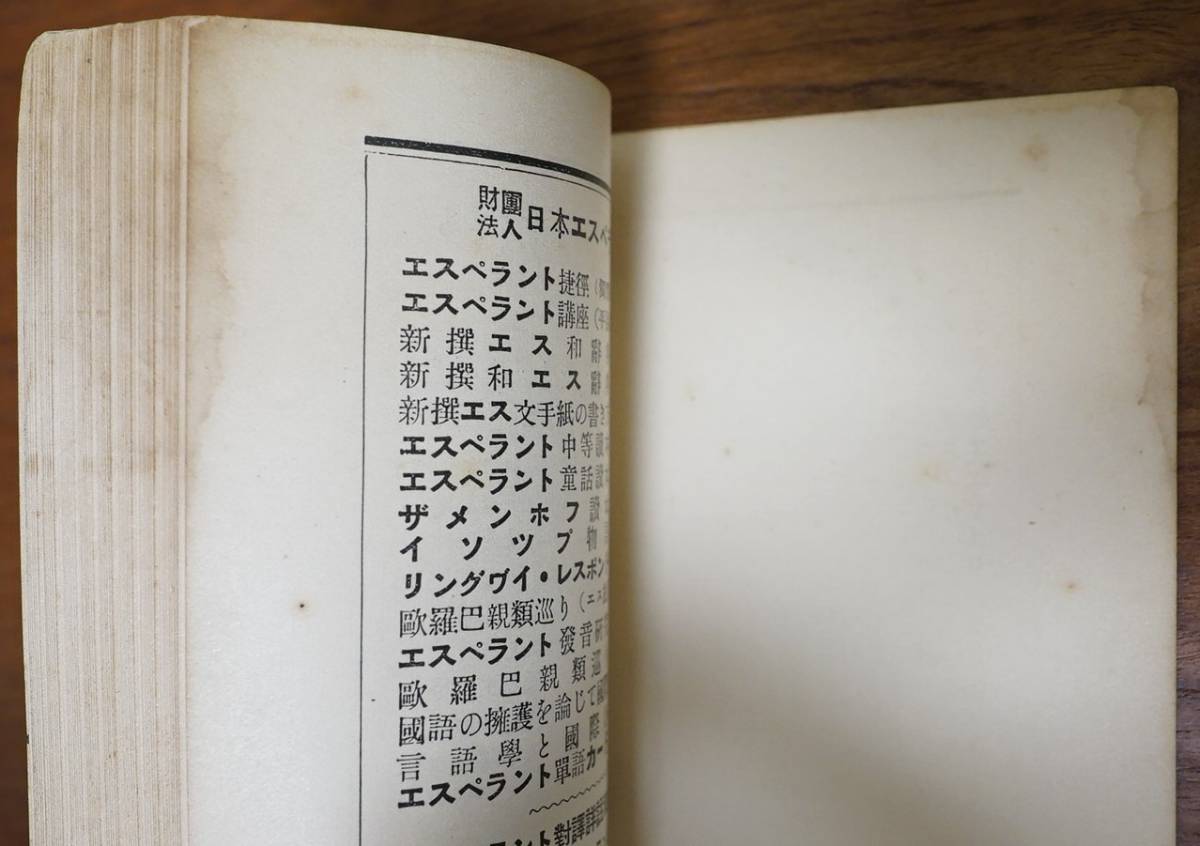 財團
法人日本エスペ
エスペラント捷徑
エスペラント講座
新撰エス和辭
新撰和エス辭
新撰エス文手紙の書き
エスペラント中等讀本
エスペラント童話讀本
ザメンホフ讀
イソップ物
リングヴイ・レスポン
歐羅巴親類巡り（エス
エスペラント發音研
歐羅巴親類巡
國語の擁護を論じて
言語學と國際
エスペラント單語カー
ント對譯詳註